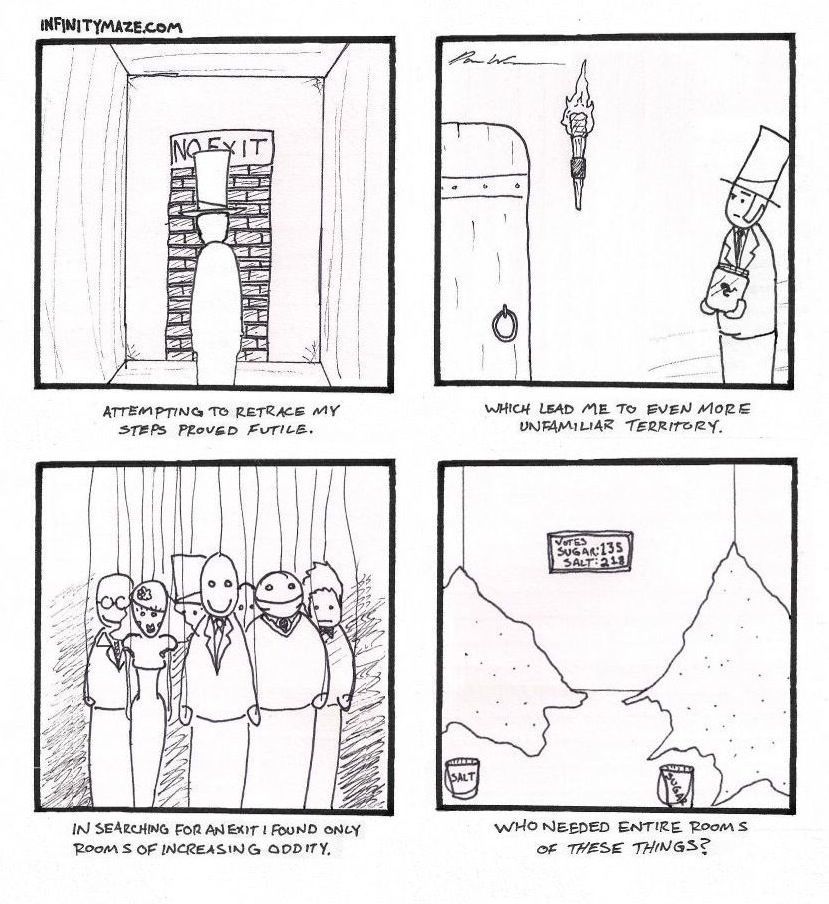 INFINITYMAZE.COM
NO EXIT
ATTEMPTING TO RETRACE MY
STEPS PROVED FUTILE.
WHICH LEAD ME TO EVEN MORE
UNFAMILIAR TERRITORY.
IN SEARCHING FOR AN EXIT I FOUND ONLY
ROOMS OF INCREASING ODDITY.
VOTES
SUGAR: 135
SALT: 218
SALT
SUGAR
WHO NEEDED ENTIRE ROOMS
OF THESE THINGS?